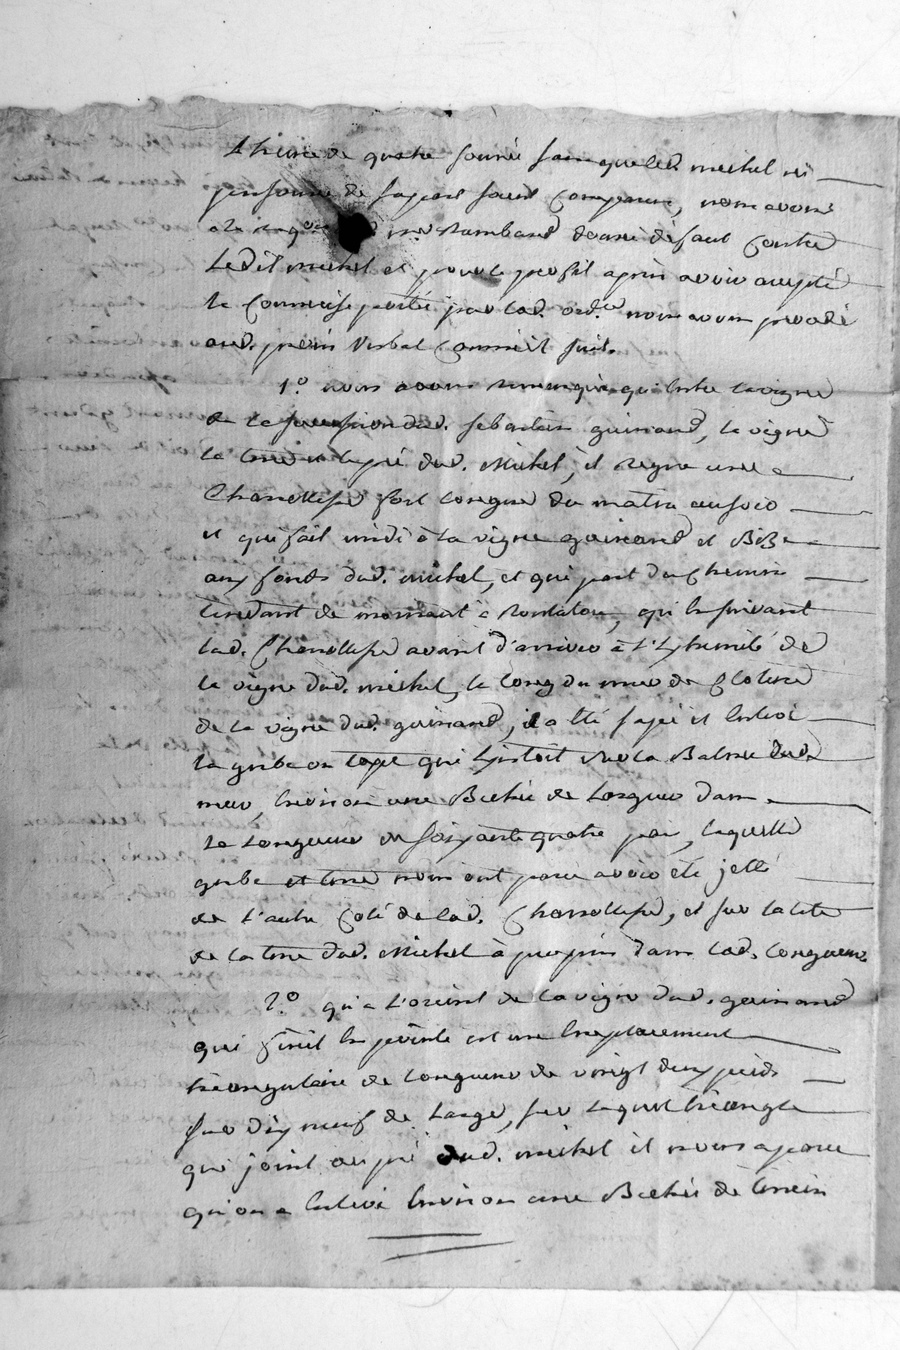 L'heure de quatre sonnée sans que led. michel ni
personne de sa part soient comparus, nous avons
a la req.on me Rambaud donné défaut contre
Ledit michel et pour le profit après avoir accepté
la Commise portée par lad. ord.ce nous avons procédé
aud. procès Verbal Comme il suit.
1.o nous avons remarqué qu'entre la vigne
de la succession dud. sebastien guinand, la vigne
la terre et le pré dud. Michel, il regne une
Charollese fort longue du matin au soir
et qui fait midi à la vigne guinand et Bise
aux fonds dud. michel, et qui part du chemin
tendant de mornant à Rontalon, qu'en suivant
lad. Charollese avant d'arriver à l'Extremité de
la vigne dud. michel, le long du mur de Cloture
de la vigne dud. guinand, il a été sapé et Enlevé
la gorbe ou tope qui Existoit sur la Balme dud.
mur, Environ une Bechée de Largeur dans
la longueur de soixante quatre pas, laquelle
gorbe et terre nous ont paru avoir été jetté
de l'autre Coté de lad. Charollese, et sur la tête
de la terre dud. Michel à peu près dans lad. longueur
2.o qu'a L'orient de la vigne dud. guinand
qui finit en pointe est un Emplacement
triangulaire de longueur de vingt deux pieds
sur dix neuf de Large, sur lequel triangle
qui joint au pré dud. michel il nous a paru
qu'on a Enlevé Environ une Bechée de terrein